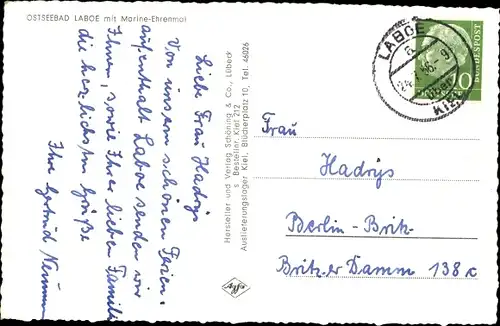 OSTSEEBAD LABOE mit Marine-Ehrenmal
Liebe Frau Hadrys
Von unserm schönen Ferien-
aufenthalt Laboe senden wir
Ihnen, sowie Ihrer lieben Familie
die herzlichsten Grüße
Ihre Gertrud
Hersteller und Verlag Schöning & Co., Lübeck
s. Besteller, Kiel 212
Auslieferungslager Kiel, Blücherplatz 10, Tel. 46026
LABOE
a
KIEL
BUNDESPOST
10
Frau
Hadrys
Berlin-Britz
Britzer Damm 138c